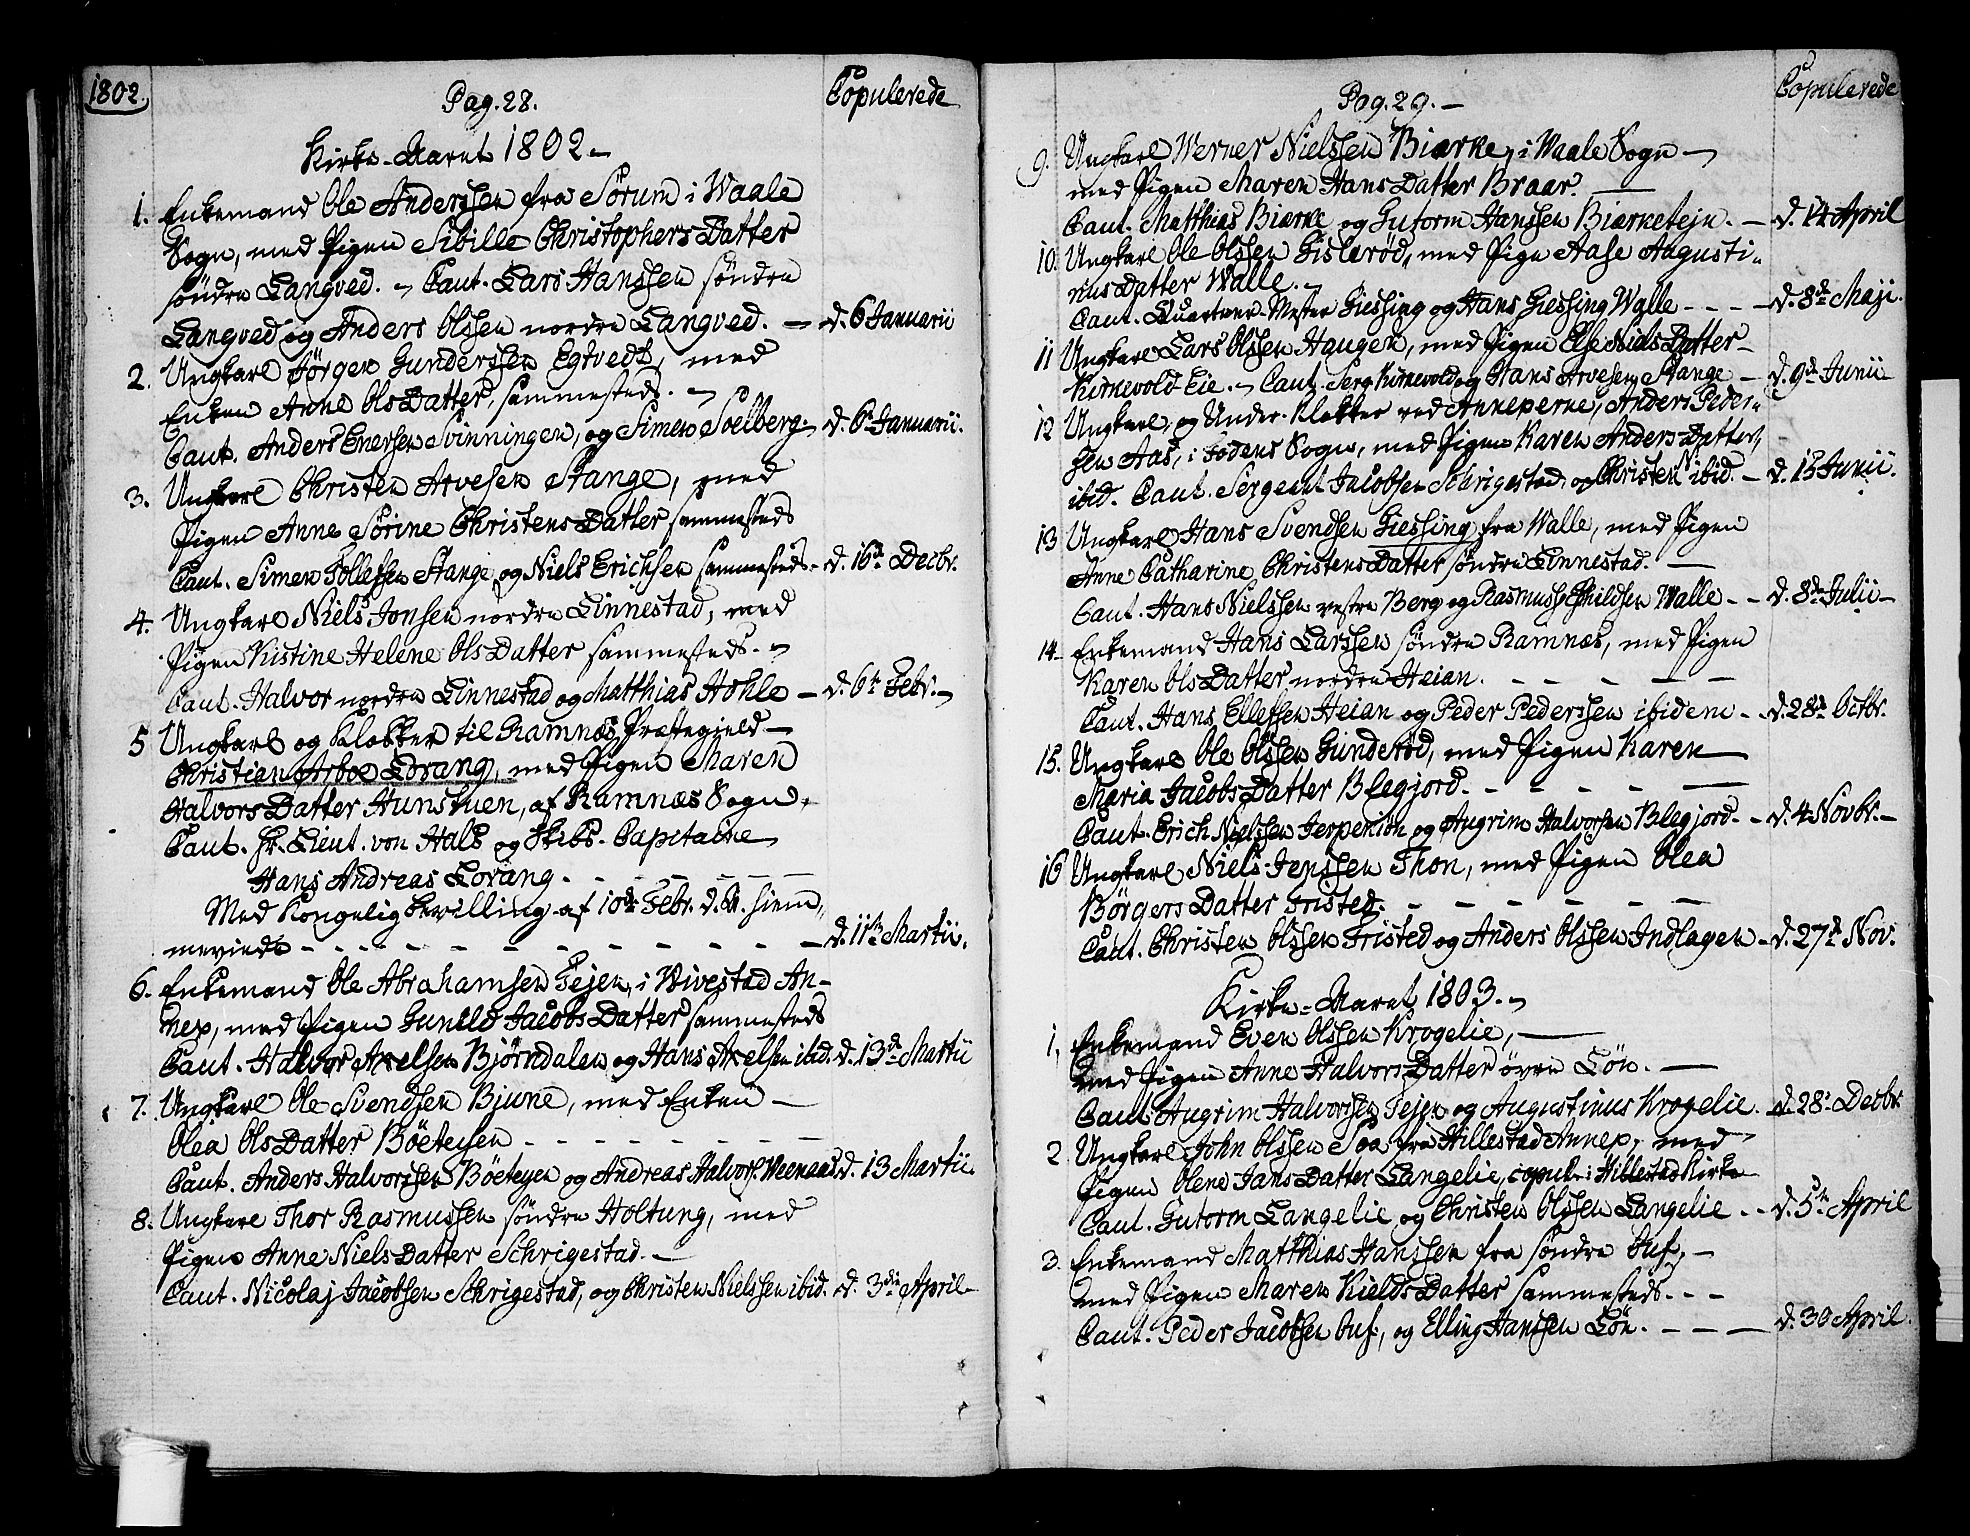 1802.
Pag. 28.
Copulerede
Kirke-Aaret 1802.
1. Enkemand Ole Anderssen fra Sørum i Waale
Sogn, med Pigen Sibille Christophers Datter
søndre Langved. Caut. Lars Hanssen søndre
Langved og Anders Olssen nordre Langved. — d. 6 Januarii
2. Ungkarl Jørgen Gunderssen Egtvedt, med
Enken Anne Ols Datter, sammesteds.
Caut. Anders Enersen Svinningen, og Simen Soelberg. d. 6te Januarii.
3. Ungkarl Christen Arvesen Stange, med
Pigen Anne Sørine Christens Datter sammesteds
Caut. Simen Tollefsen Stange og Niels Erichsen sammesteds. d. 16de Decbr.
4. Ungkarl Niels Jonsen nordre Linnestad, med
Pigen Kistine Helene Ols Datter sammesteds.
Caut. Halvor nordre Linnestad og Matthias Hohle — d. 6te Febr.
5 Ungkarl og Klokker til Ramnæs Præstegield —
Christian Arboe Lorang, med Pigen Maren
Halvors Datter Hunstuen, af Ramnæs Sogn,
Caut. Hr. Lieut. von Hals og Skibs-Capitaine
Hans Andreas Lorang. - - - - -
Med Kongelig bevilling af 10de Febr. d. A. hiem,,
meviede - - - - - - - - d. 11te Martii.
6. Enkemand Ole Abrahamsen Fejen, i Vivestad An-
nex, med Pigen Gunild Jacobs Datter sammesteds
Caut. Halvor Axelsen Bjørndalen og Hans Axelsen ibid. d. 13de Martii
7. Ungkarl Ole Svendsen Bjune, med Enken —
Olea Ols Datter Böeteyen - - - - - - -
Caut. Anders Halvorssen Böeteyen og Andreas Halvors. Veenaas d. 13 Martii.
8. Ungkarl Thor Rasmussen søndre Holtung, med
Pigen Anne Niels Datter Schrigestad. —
Caut. Nicolaj Jacobsen Schrigestad, og Christen Nielssen ibid. d. 3die April
Pag. 29. —
Copulerede
9. Ungkarl Werner Nielssen Biærke, i Waale Sogn —
med Pigen Maren Hans Datter Braar. —
Caut. Matthias Biærke og Gutorm Hanssen Biærketejn. — d. 14 April
10. Ungkarl Ole Olssen Gislerød, med Pige Aase Augusti-
nus Datter Walle.
Caut. Quarteer-Mester Giessing og Hans Giessing Walle - - - d. 8de Maji.
11 Ungkarl Lars Olssen Haugen, med Pigen Else Niels Datter —
Kirnevold Eie. Caut. Serg. Kirnevold og Hans Arvesen Stange — d. 9de Junii
12 Ungkarl, og Under-Klokker ved Annexerne, Anders Peder-
sen Aas, i Fodens Sogn, med Pigen Karen Anders Datter,
ibid. Caut. Sergeant Jacobsen Schrigestad, og Christen N. ibid. — d. 15 Junii.
13 Ungkarl Hans Svendsen Giessing fra Walle, med Pigen
Anne Catharine Christens Datter søndre Linnestad. —
Caut. Hans Nielssen vestre Berg og Rasmus Eskildsen Walle - - d. 8de Julii —
14. Enkemand Hans Larssen søndre Ramnæs, med Pigen
Karen Ols Datter nordre Heian. - - - - -
Caut. Hans Ellefsen Heian og Peder Pederssen ibidem - - d. 28de Octbr.
15. Ungkarl Ole Olssen Gunderød, med Pigen Karen —
Maria Jacobs Datter Blegjord. - - - - -
Caut. Erich Nielssen Jerpekiön og Augrim Halvorsen Blegjord. - - d. 4 Novbr. —
16 Ungkarl Niels Jenssen Thon, med Pigen Olea
Börgers Datter Fristed. - - - - -
Caut. Christen Olssen Fristed og Anders Olssen Indlagen - d. 27de Nov.
Kirke-Aaret 1803.
1, Enkemand Even Olssen Krogelie, —
med Pigen Anne Halvors Datter øvre Lön. —
Caut. Augrim Halvorsen Fejen og Augustinus Krogelie. d. 28de Decbr.
2 Ungkarl John Olssen Soa, fra Hillestad Annex, med
Pigen Olene Jans Datter Langelie, copul. i Hillestad Kirke
Caut. Gutorm Langelie og Christen Olssen Langelie - - d. 5te April
3. Enkemand Matthias Hanssen fra søndre Ouf, —
med Pigen Maren Kields Datter sammesteds. - -
Caut. Peder Jacobsen Ouf, og Elling Hanssen Lön. - - - - d. 30 April.